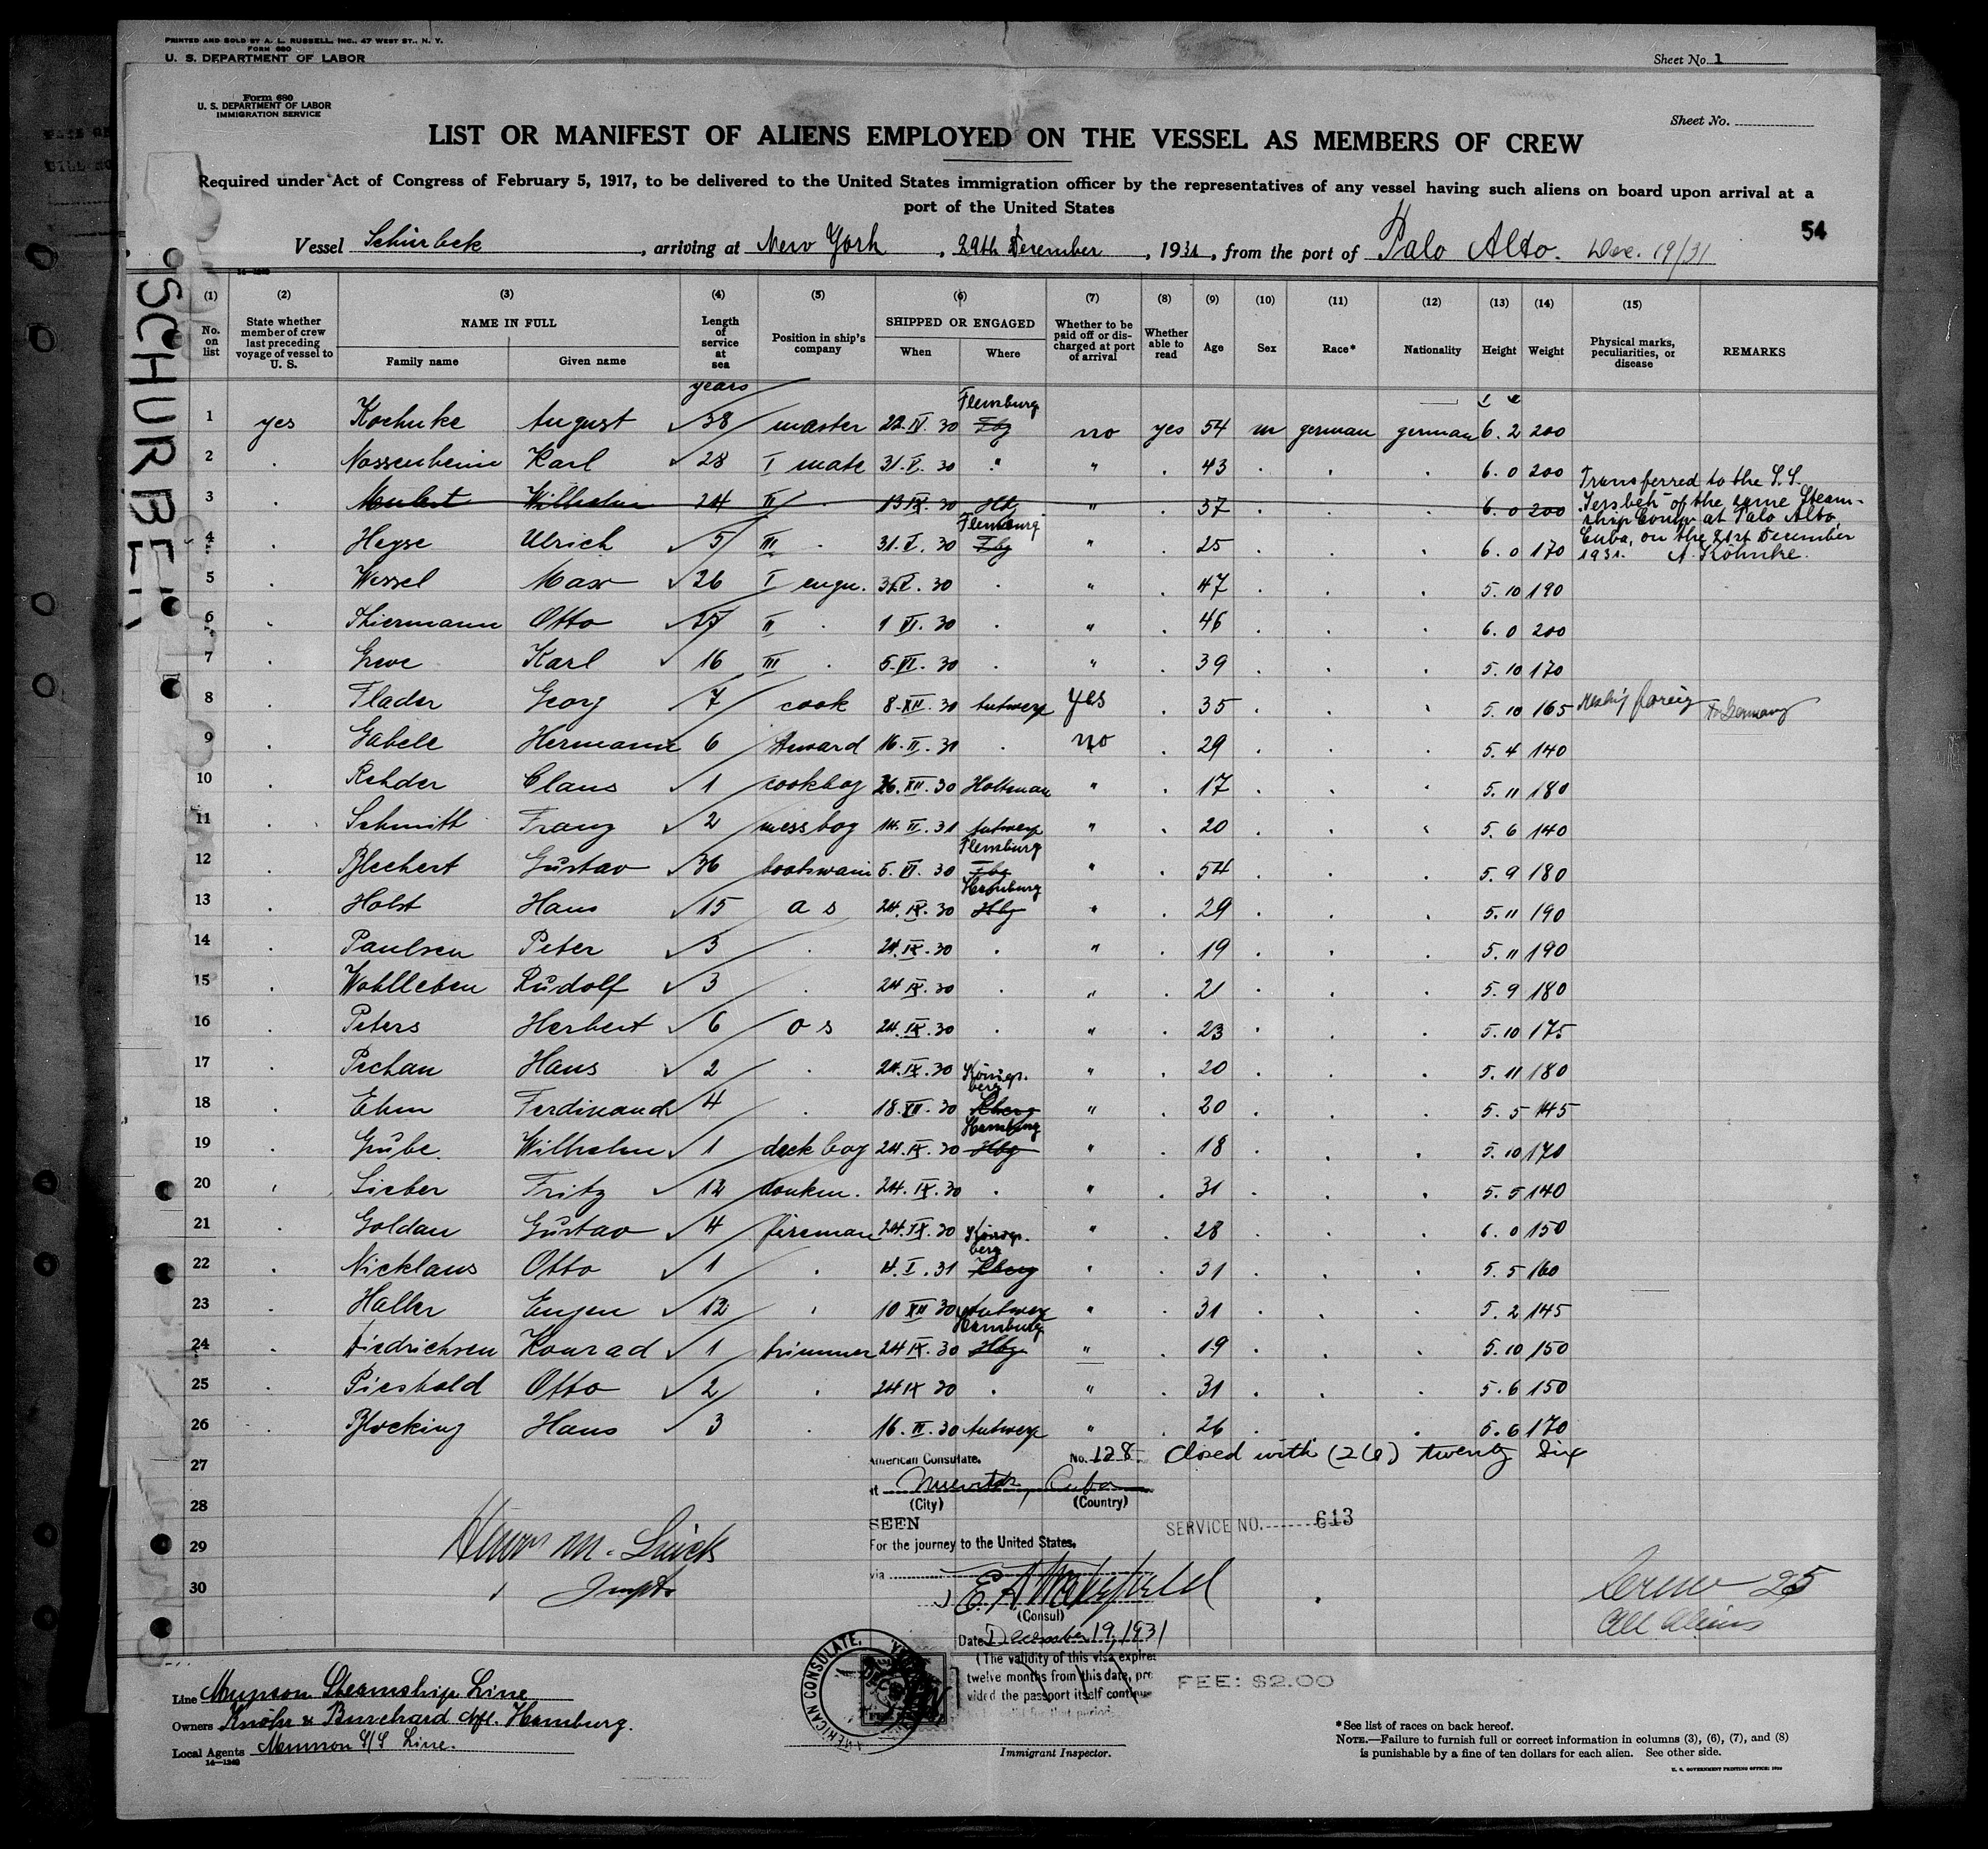 PRINTED AND SOLD BY A. L. RUSSELL, INC., 47 WEST ST., N. Y.
FORM 680
U. S. DEPARTMENT OF LABOR
Sheet No. 1
Form 680
U. S. DEPARTMENT OF LABOR
IMMIGRATION SERVICE
Sheet No.
LIST OR MANIFEST OF ALIENS EMPLOYED ON THE VESSEL AS MEMBERS OF CREW
Required under Act of Congress of February 5, 1917, to be delivered to the United States immigration officer by the representatives of any vessel having such aliens on board upon arrival at a
port of the United States
54
Vessel Schürbek, arriving at New York, 29th December, 1931, from the port of Palo Alto. Dec. 19/31
SCHURBEK
(1) (2) (3) (4) (5) (6) (7) (8) (9) (10) (11) (12) (13) (14) (15)
No. on list State whether member of crew last preceding voyage of vessel to U. S. NAME IN FULL Family name Given name Length of service at sea Position in ship's company SHIPPED OR ENGAGED When Where Whether to be paid off or discharged at port of arrival Whether able to read Age Sex Race* Nationality Height Weight Physical marks, peculiarities, or disease REMARKS
years
1 yes Koehnke August 38 master 22.IV.30 Flensburg Fbg no yes 54 m german german 6.2 200
2 . Nossenheim Karl 28 I mate 31.V.30 " " . 43 . . . 6.0 200
3 . Wilhelm 24 II . 19 IX.30 Hbg " . 37 . . . 6.0 200 Transferred to the S.S.
of the same Steam-
ship Comp. at Palo Alto,
Cuba, on the 21st December
1931. A. Köhnke.
4 . Heyse Ulrich 5 III . 31.V.30 Flensburg Fbg " . 25 . . . 6.0 170
5 . Wessel Max 26 I engn. 31.V.30 . " . 47 . . . 5.10 190
6 . Thiermann Otto 25 II . 1 VI.30 . " . 46 . . . 6.0 200
7 . Greve Karl 16 III . 5.VI.30 . " . 39 . . . 5.10 170
8 . Flader Georg 7 cook 8.XII.30 Antwerp yes . 35 . . . 5.10 165 Germany
9 . Gabele Hermann 6 steward 16.II.31 . no . 29 . . . 5.4 140
10 . Rehder Claus 1 cookboy 26.XII.30 Holtenau " . 17 . . . 5.11 180
11 . Schmith Franz 2 messboy 14.II.31 Antwerp " . 20 . . . 5.6 140
12 . Blechert Gustav 36 boatswain 5.VI.30 Flensburg Fbg " . 54 . . . 5.9 180
13 . Holst Hans 15 a s 24.IX.30 Hamburg Hbg " . 29 . . . 5.11 190
14 . Paulsen Peter 3 . 24.IX.30 . " . 19 . . . 5.11 190
15 . Wohlleben Rudolf 3 . 24 IX.30 . " . 21 . . . 5.9 180
16 . Peters Herbert 6 o s 24.IX.30 . " . 23 . . . 5.10 175
17 . Pechan Hans 2 . 24.IX.30 " . 20 . . . 5.11 180
18 . Ehm Ferdinand 4 . 18.XII.30 Königsberg Kberg " . 20 . . . 5.5 145
19 . Grube Wilhelm 1 deck boy 24.IX.30 Hamburg Hbg " . 18 . . . 5.10 170
20 . Lieber Fritz 12 donkm. 24.IX.30 . " . 31 . . . 5.5 140
21 . Goldau Gustav 4 fireman 24.IX.30 " . 28 . . . 6.0 150
22 . Nicklaus Otto 1 . 4.I.31 Königsberg Kberg " . 31 . . . 5.5 160
23 . Haller Eugen 12 . 10 XII 30 Antwerp " . 31 . . . 5.2 145
24 . Diedrichsen Konrad 1 trimmer 24 IX.30 Hamburg Hbg " . 19 . . . 5.10 150
25 . Piesbold Otto 2 . 24 IX 30 . " . 31 . . . 5.6 150
26 . Blocking Hans 3 . 16.II.30 Antwerp " . 26 . . . 5.6 170
27 American Consulate. No. 128. Closed with (26) twenty Six
at Nuevitas, Cuba
(City) (Country)
28
SEEN
SERVICE NO. 613
29
For the journey to the United States.
30
via
E. A. Wakefield
(Consul)
Crew 25
All Aliens
Date December 19, 1931
(The validity of this visa expires
twelve months from this date, pro
vided the passport itself continue
FEE: $2.00
AMERICAN CONSULATE,
Line Munson Steamship Line
Owners Knöhr & Burchard Nfl. Hamburg.
Local Agents Munson S/S Line.
14—1240
Immigrant Inspector.
*See list of races on back hereof.
NOTE.—Failure to furnish full or correct information in columns (3), (6), (7), and (8)
is punishable by a fine of ten dollars for each alien. See other side.
U. S. GOVERNMENT PRINTING OFFICE: 1930